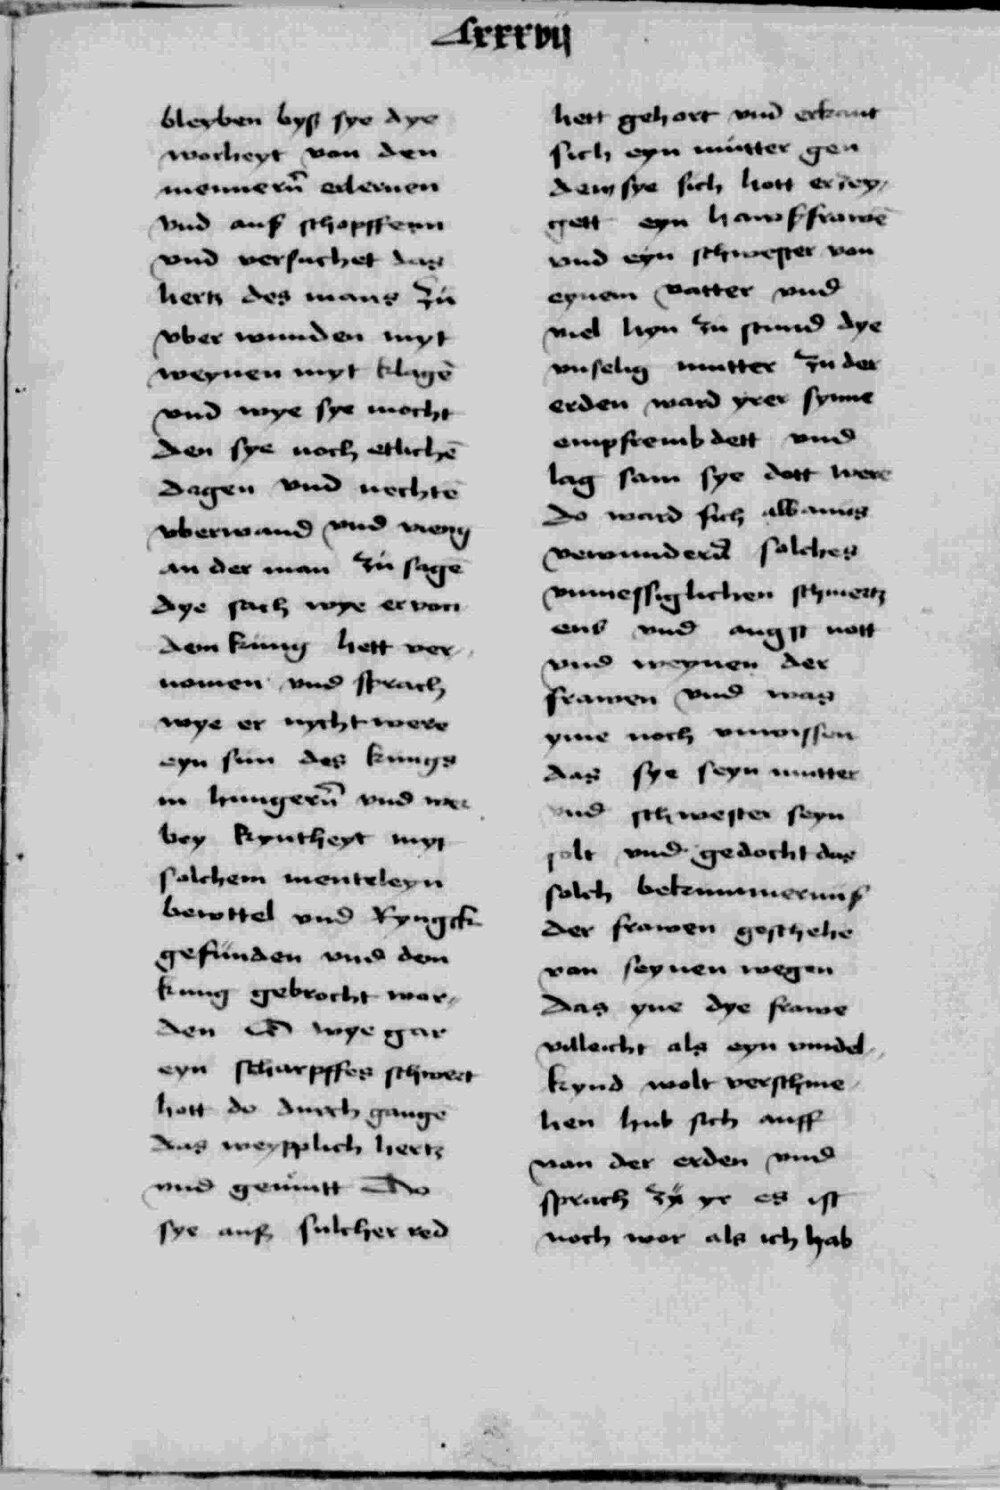 Lxxxvij
bleyben byß sye dye
worheyt von den
mennerñ erlernen
vnd auß schopffenn
vnd versuchet das
hertz des mans zü
vber wunden myt
weynen myt klagē
vnd wye sye mocht
den sye noch etlichē
dagen vnd nechtē
vberwand vnd vieng
an der man zü sagē
dye sach wye er von
dem küng hett ver,
nomen vnd sprach
wye er nycht were
eyn sun des kungs
in hungerñ vnd wer
bey kyntheyt myt
solchem menteleyn
bewttel vnd Ryngck
gefünden vnd dem
kung gebrocht wor,
den O wye gar
eyn scharpffes schwert
hott do durch gangē
das weypplich hertz
vnd gemütt Do
sye auß sulcher red
hett gehort vnd erkant
sich eyn mütter gen
dem sye sich hott erzey,
gett eyn hawßfrawē
vnd eyn schwester von
eynem vatter vnd
viel hyn zu stund dye
vnselig mutter zu der
erden ward yrer synne
empfrembdett vnd
lag sam sye dott were
do ward sich albanus
verwunderñ solches
vnmessiglichen schmertz
ens vnd angst nott
vnd weynen der
frawen vnd was
yme noch vnwissen
das sye seyn mutter
vnd schwester seyn
solt vnd gedocht das
solch bekummernuß
der frawen geschehe
von seynen wegen
das yne dye frawe
villeicht als eyn vindel,
kynd wolt verschme,
hen hub sich auff
van der erden vnd
sprach zü yr es ist
noch wor als ich hab